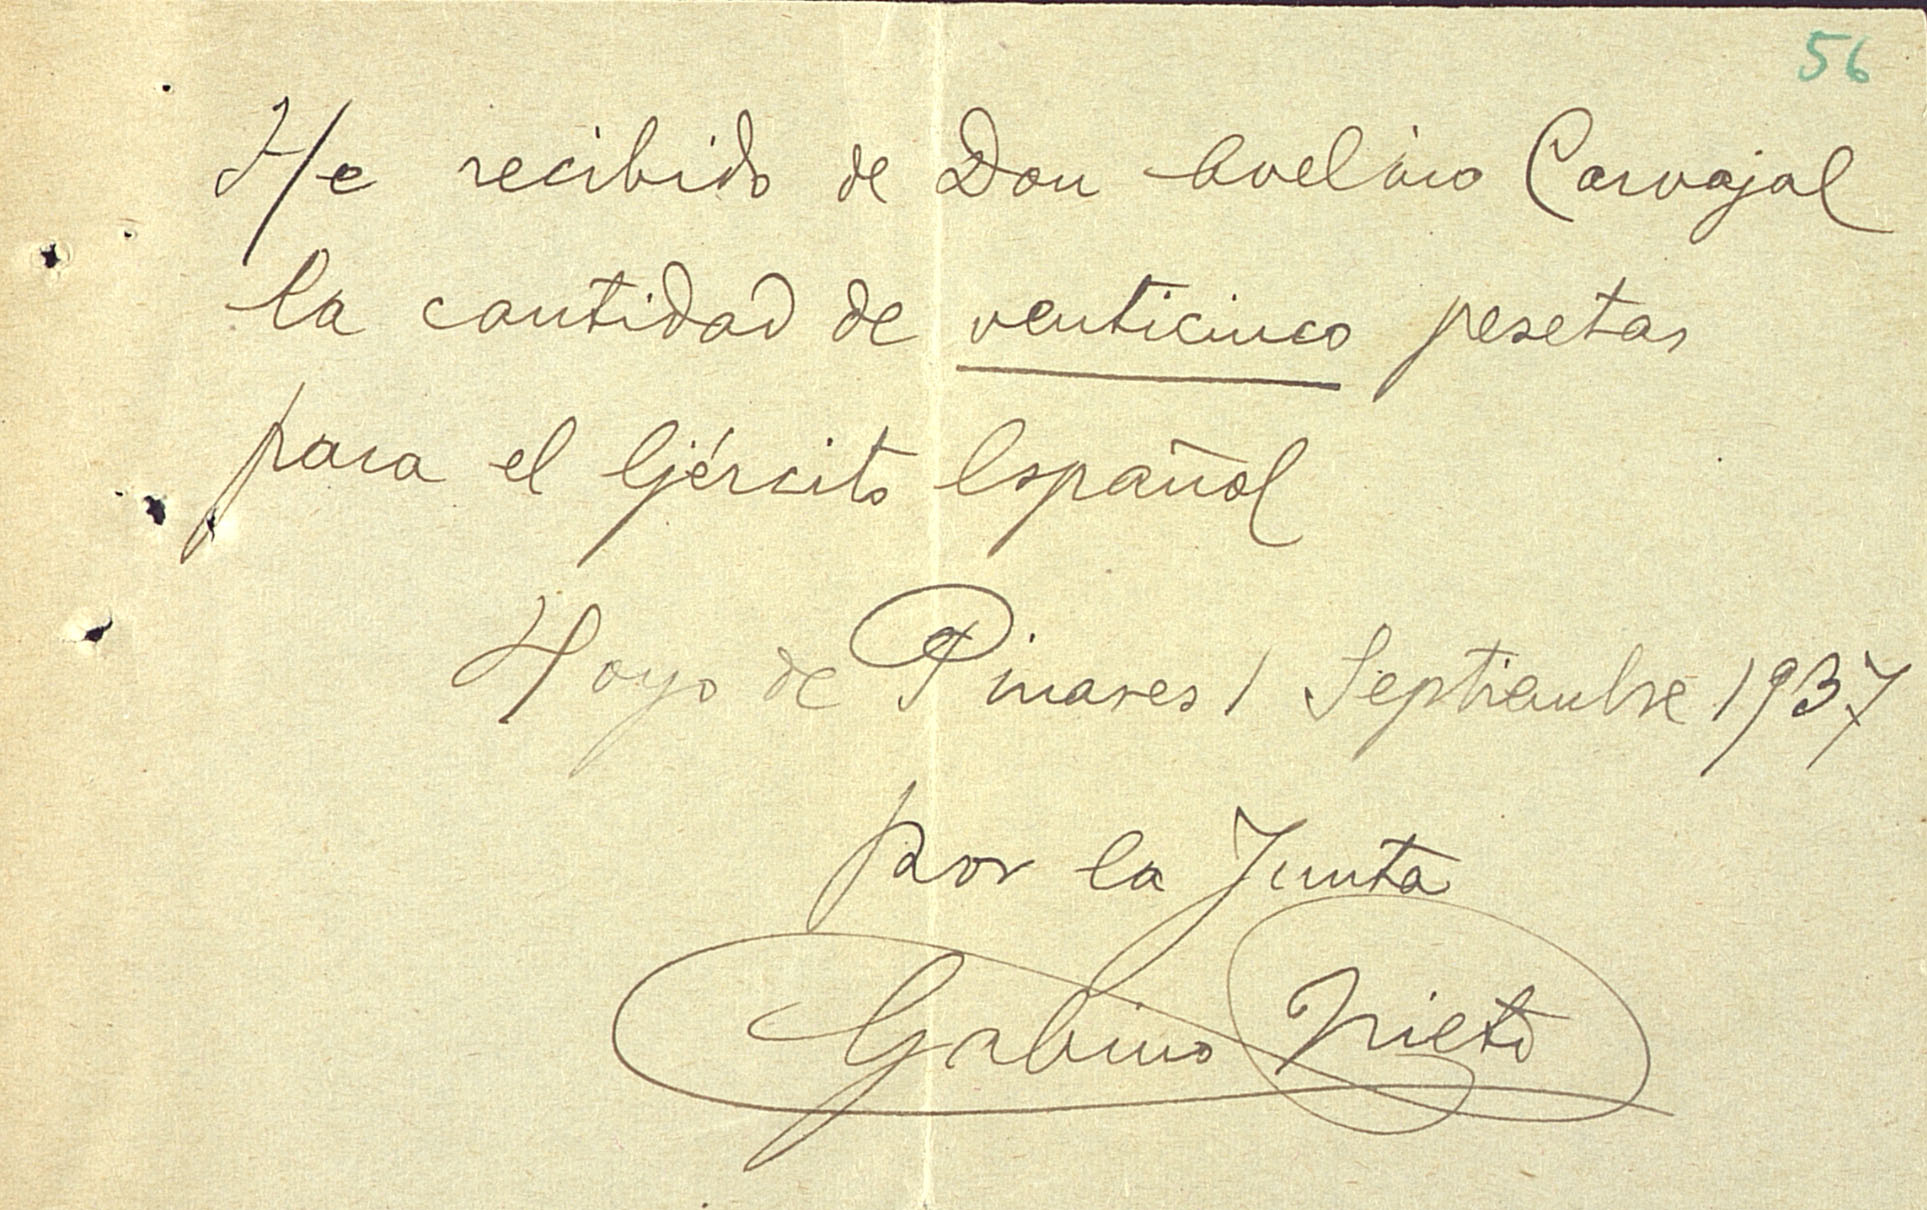 56
He recibido de Don Avelino Carvajal
la cantidad de venticinco pesetas
para el Ejército Español
Hoyo de Pinares 1 Septiembre 1937
por la Junta
Gabino Nieto